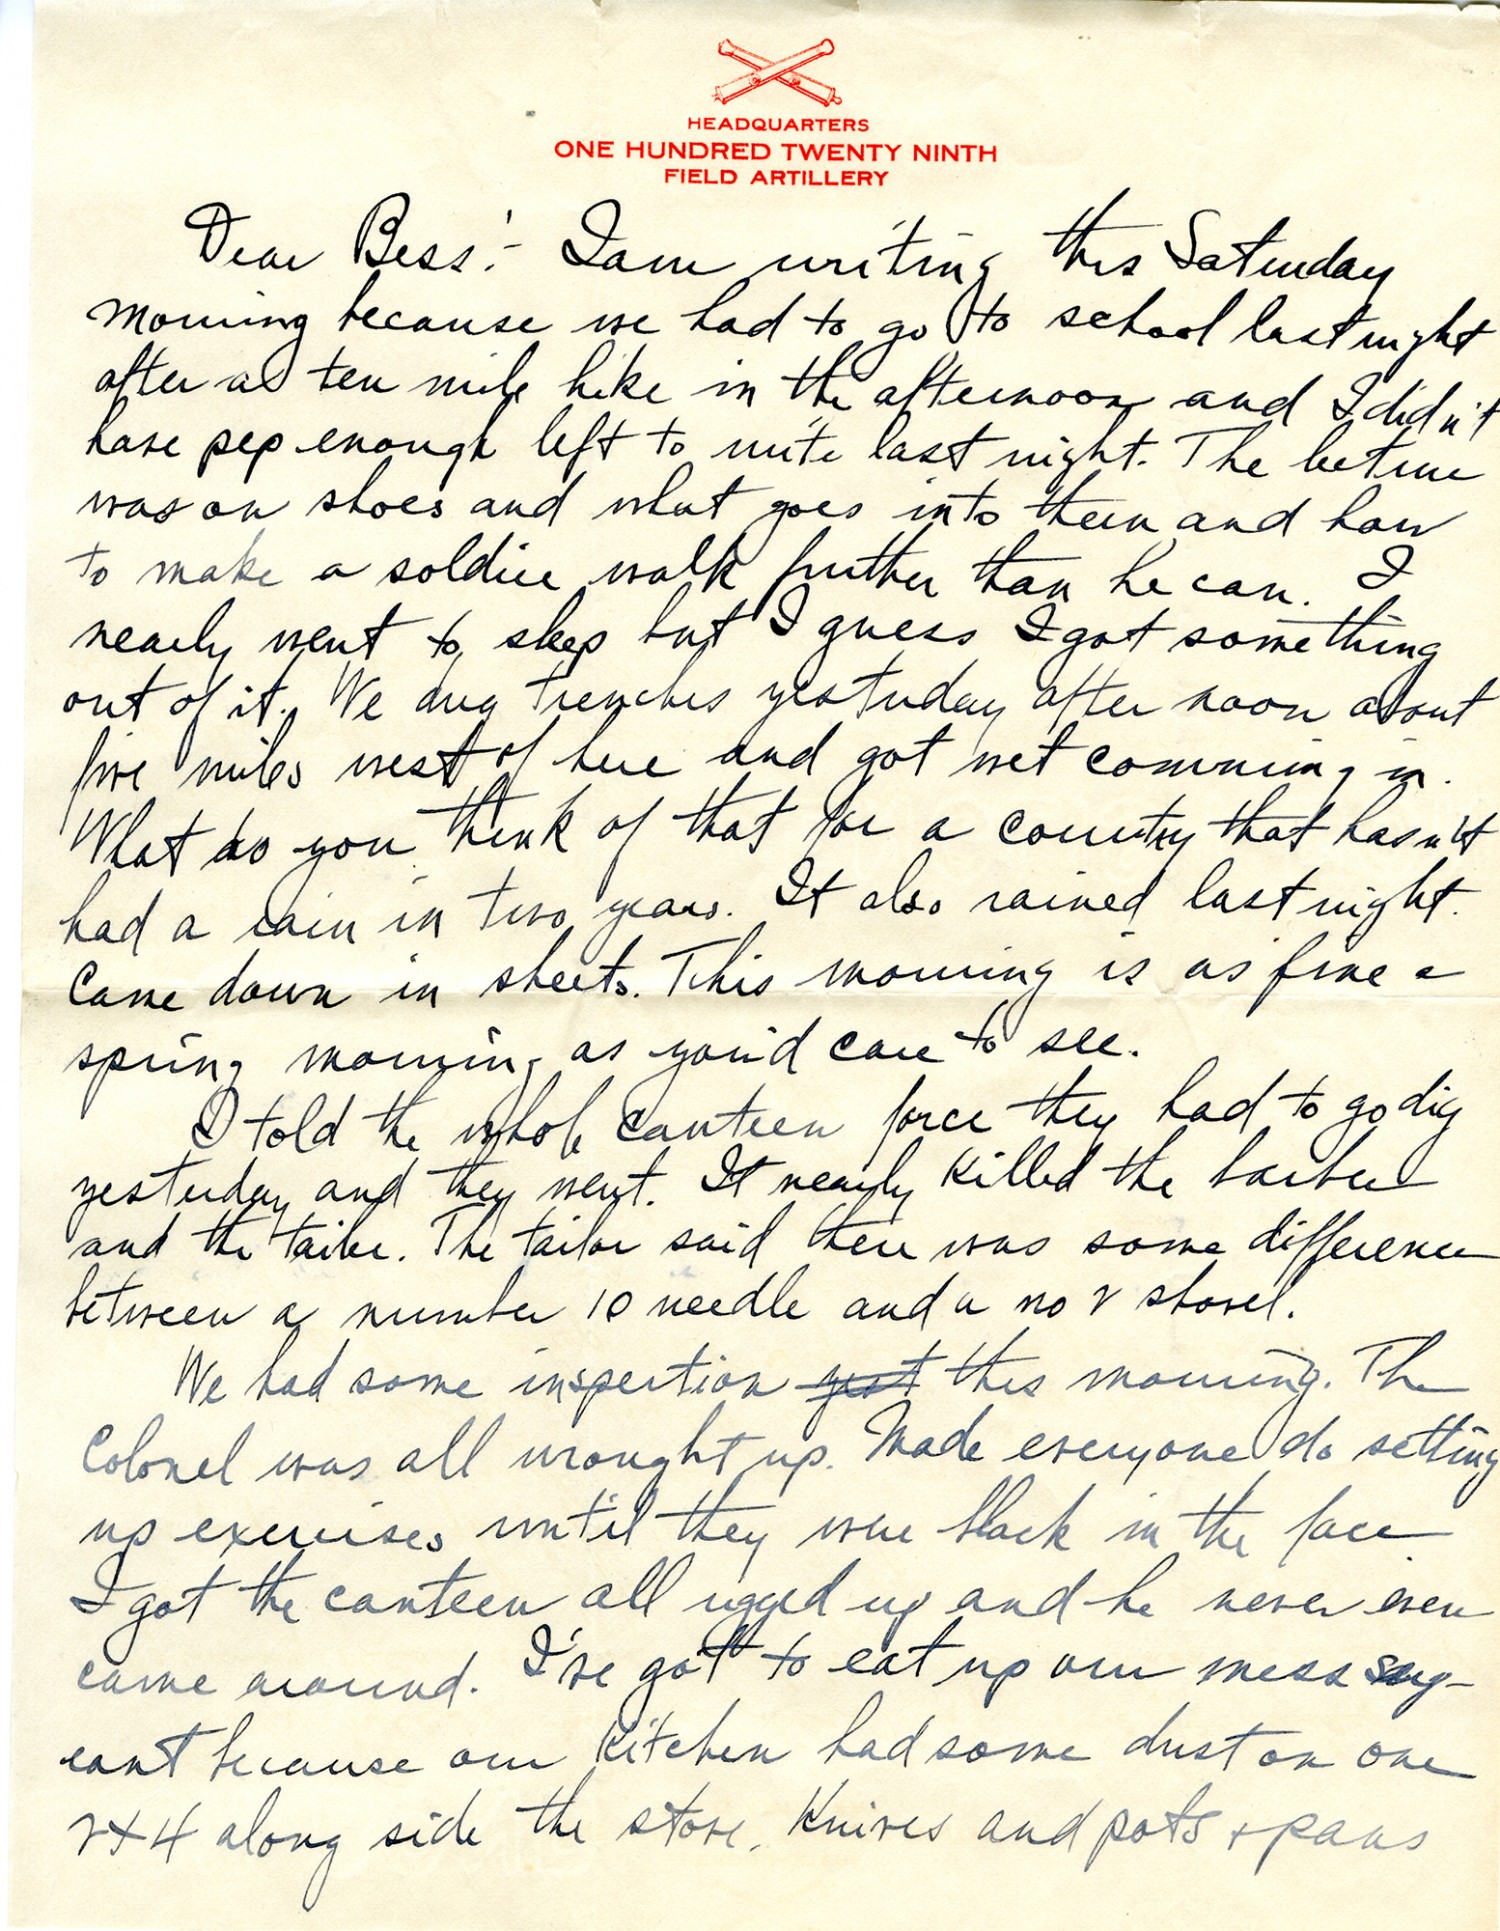 HEADQUARTERS
ONE HUNDRED TWENTY NINTH
FIELD ARTILLERY
Dear Bess:- I am writing this Saturday
morning because we had to go to school last night
after a ten mile hike in the afternoon and I didn't
have pep enough left to write last night. The lecture
was on shoes and what goes into them and how
to make a soldier walk further than he can. I
nearly went to sleep but I guess I got something
out of it. We dug trenches yesterday after noon about
five miles west of here and got wet comming in.
What do you think of that for a country that hasn't
had a rain in two years. It also rained last night.
Came down in sheets. This morning is as fine a
spring morning as you'd care to see.
I told the whole canteen force they had to go dig
yesterday and they went. It nearly killed the barber
and the tailor. The tailor said there was some difference
between a number 10 needle and a no 2 shovel.
We had some inspection yest this morning. The
Colonel was all wrought up. Made everyone do setting
up exercises until they were black in the face
I got the canteen all rigged up and he never even
came around. I've got to eat up our mess serg-
eant because our kitchen had some dust on one
2x4 along side the stove. Knives and pots & pans